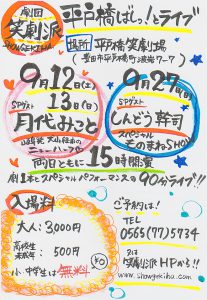 劇団
笑劇派
SHOWGEKIHA
平戸橋ばしっ!とライブ
場所
平戸橋笑劇場
(豊田市平戸橋町波岩ワーア)
9月12日(土)
13日(日)
SPゲスト
月代みこと
ニューハーフ
9月27日(日)
SPゲスト
しんどう幹司
スペシャル
ものまねSHOW
両日ともに15時開演
劇1本とスペシャルパフォーマンスの90分ライブ!!
入場料
大人:3,000円
高校生
未就年:500円
小・中学生は無料
¥0
ご予約は!
TEL
0565(77)5734
又は
笑劇派HPから!!
www.showgekiha.com